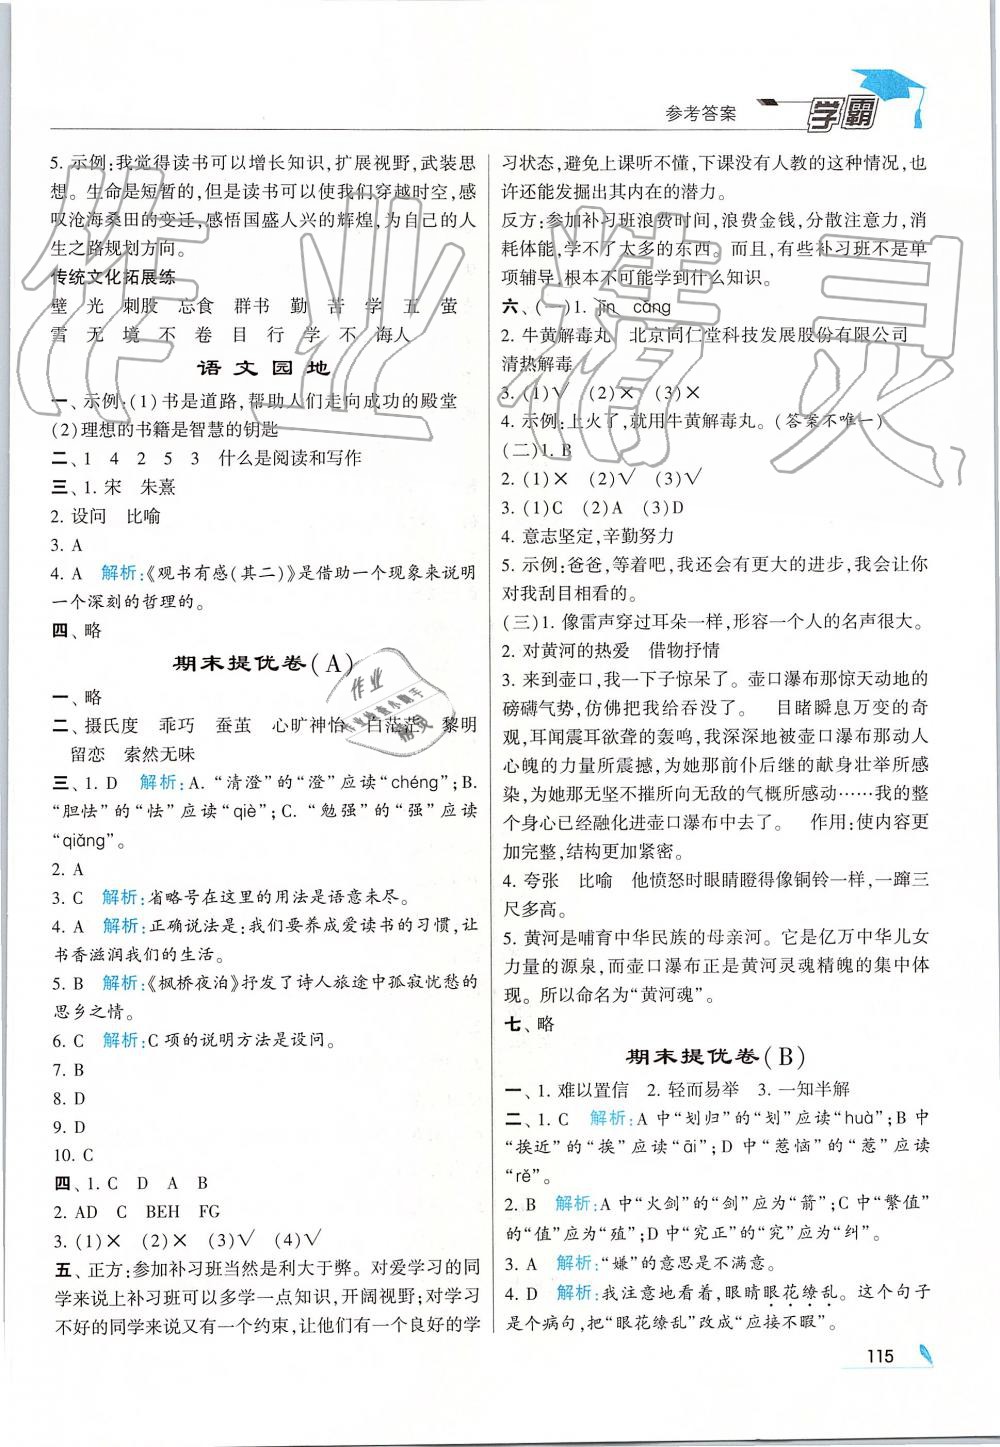 参考答案
学霸
5. 示例:我觉得读书可以增长知识,扩展视野,武装思
想。生命是短暂的,但是读书使我们穿越时空,感
叹沧海桑田的变迁,感悟国盛人兴的辉煌,为自己的人
生之路规划方向。
传统文化拓展练
壁 光 刺股 忘食 群书 勤 苦 学 五 萤
雪 无 境 不 卷 目 行 学 不 诲人
语文园地
一、示例:(1)书是道路,帮助人们走向成功的殿堂
(2)理想的书籍是智慧的钥匙
二、1 4 2 5 3 什么是阅读和写作
三、1. 宋 朱熹
2. 设问 比喻
3. A
4. A 解析:《观书有感(其二)》是借助一个现象来说明
一个深刻的哲理的。
四、略
期末提优卷(A)
一、略
二、摄氏度 乖巧 蚕茧 心旷神怡 白茫茫 黎明
留恋 索然无味
三、1. D 解析:A. “清澄”的“澄”应读“chéng”;B.
“胆怯”的“怯”应读“qiè”;C. “勉强”的“强”应读
“qiǎng”。
2. A
3. C 解析:省略号在这里的用法是语意未尽。
4. A 解析:正确说法是:我们要养成爱读书的习惯,让
书香滋润我们的生活。
5. B 解析:《枫桥夜泊》抒发了诗人旅途中孤寂忧愁的
思乡之情。
6. C 解析:C 项的说明方法是设问。
7. B
8. D
9. D
10. C
四、1. C D A B
2. AD C BEH FG
3. (1)× (2)× (3)√ (4)√
五、正方:参加补习班当然是利大于弊。对爱学习的同
学来说上补习班可以多学一点知识,开阔视野;对学习
不好的同学来说又有一个约束,让他们有一个良好的学
习状态,避免上课听不懂,下课没有人教的这种情况,也
许还能发掘出其内在的潜力。
反方:参加补习班浪费时间,浪费金钱,分散注意力,消
耗体能,学不了太多的东西。而且,有些补习班不是单
项辅导,根本不可能学到什么知识。
六、(一)1. jìn cāng
2. 牛黄解毒丸 北京同仁堂科技发展股份有限公司
清热解毒
3. (1)√ (2)× (3)×
4. 示例:上火了,就用牛黄解毒丸。(答案不唯一)
(二)1. B
2. (1)× (2)√ (3)√
3. (1)C (2)A (3)D
4. 意志坚定,辛勤努力
5. 示例:爸爸,等着吧,我还会有更大的进步,我会让你
对我刮目相看的。
(三)1. 像雷声穿过耳朵一样,形容一个人的名声很大。
2. 对黄河的热爱 借物抒情
3. 来到壶口,我一下子惊呆了。壶口瀑布那惊天动地的
磅礴气势,仿佛把我给吞没了。 目睹瞬息万变的奇
观,耳闻震耳欲聋的轰鸣,我深深地被壶口瀑布那动人
心魄的力量所震撼,为她那前仆后继的献身壮举所感
染,为她那无坚不摧所向无敌的气概所感动……我的
整个身心已经融化进壶口瀑布中去了。 作用:使内容更
加完整,结构更加紧密。
4. 夸张 比喻 他愤怒时眼睛瞪得像铜铃一样,一蹿三
尺多高。
5. 黄河是哺育中华民族的母亲河。它是亿万中华儿女
力量的源泉,而壶口瀑布正是黄河灵魂精魄的集中体
现。所以命名为“黄河魂”。
七、略
期末提优卷(B)
一、1. 难以置信 2. 轻而易举 3. 一知半解
二、1. C 解析:A 中“划归”的“划”应读“huà”;B 中
“挨近”的“挨”应读“āi”;D 中“惹恼”的“惹”应读
“rě”。
2. B 解析:A 中“火剑”的“剑”应为“箭”;C中“繁值”
的“值”应为“殖”;D 中“究正”的“究”应为“纠”。
3. A 解析:“嫌”的意思是不满意。
4. D 解析:我注意地看着,眼睛眼花缭乱。这个句子
是个病句,把“眼花缭乱”改成“应接不暇”。
115
作业精灵
作业
精灵